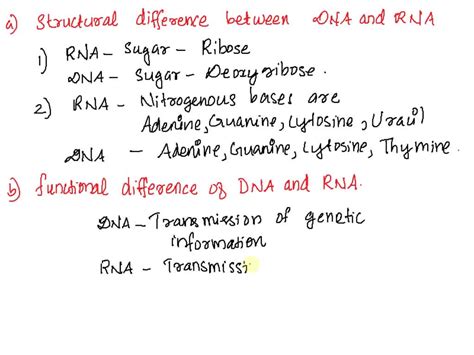 a) Structural difference between DNA and RNA
1) RNA - Sugar - Ribose
DNA - Sugar - Deoxyribose.
2) RNA - Nitrogenous bases are
Adenine, Guanine, Cytosine, Uracil
DNA - Adenine, Guanine, Cytosine, Thymine.
b) functional difference of DNA and RNA.
DNA - Transmission of genetic
information
RNA - Transmissi